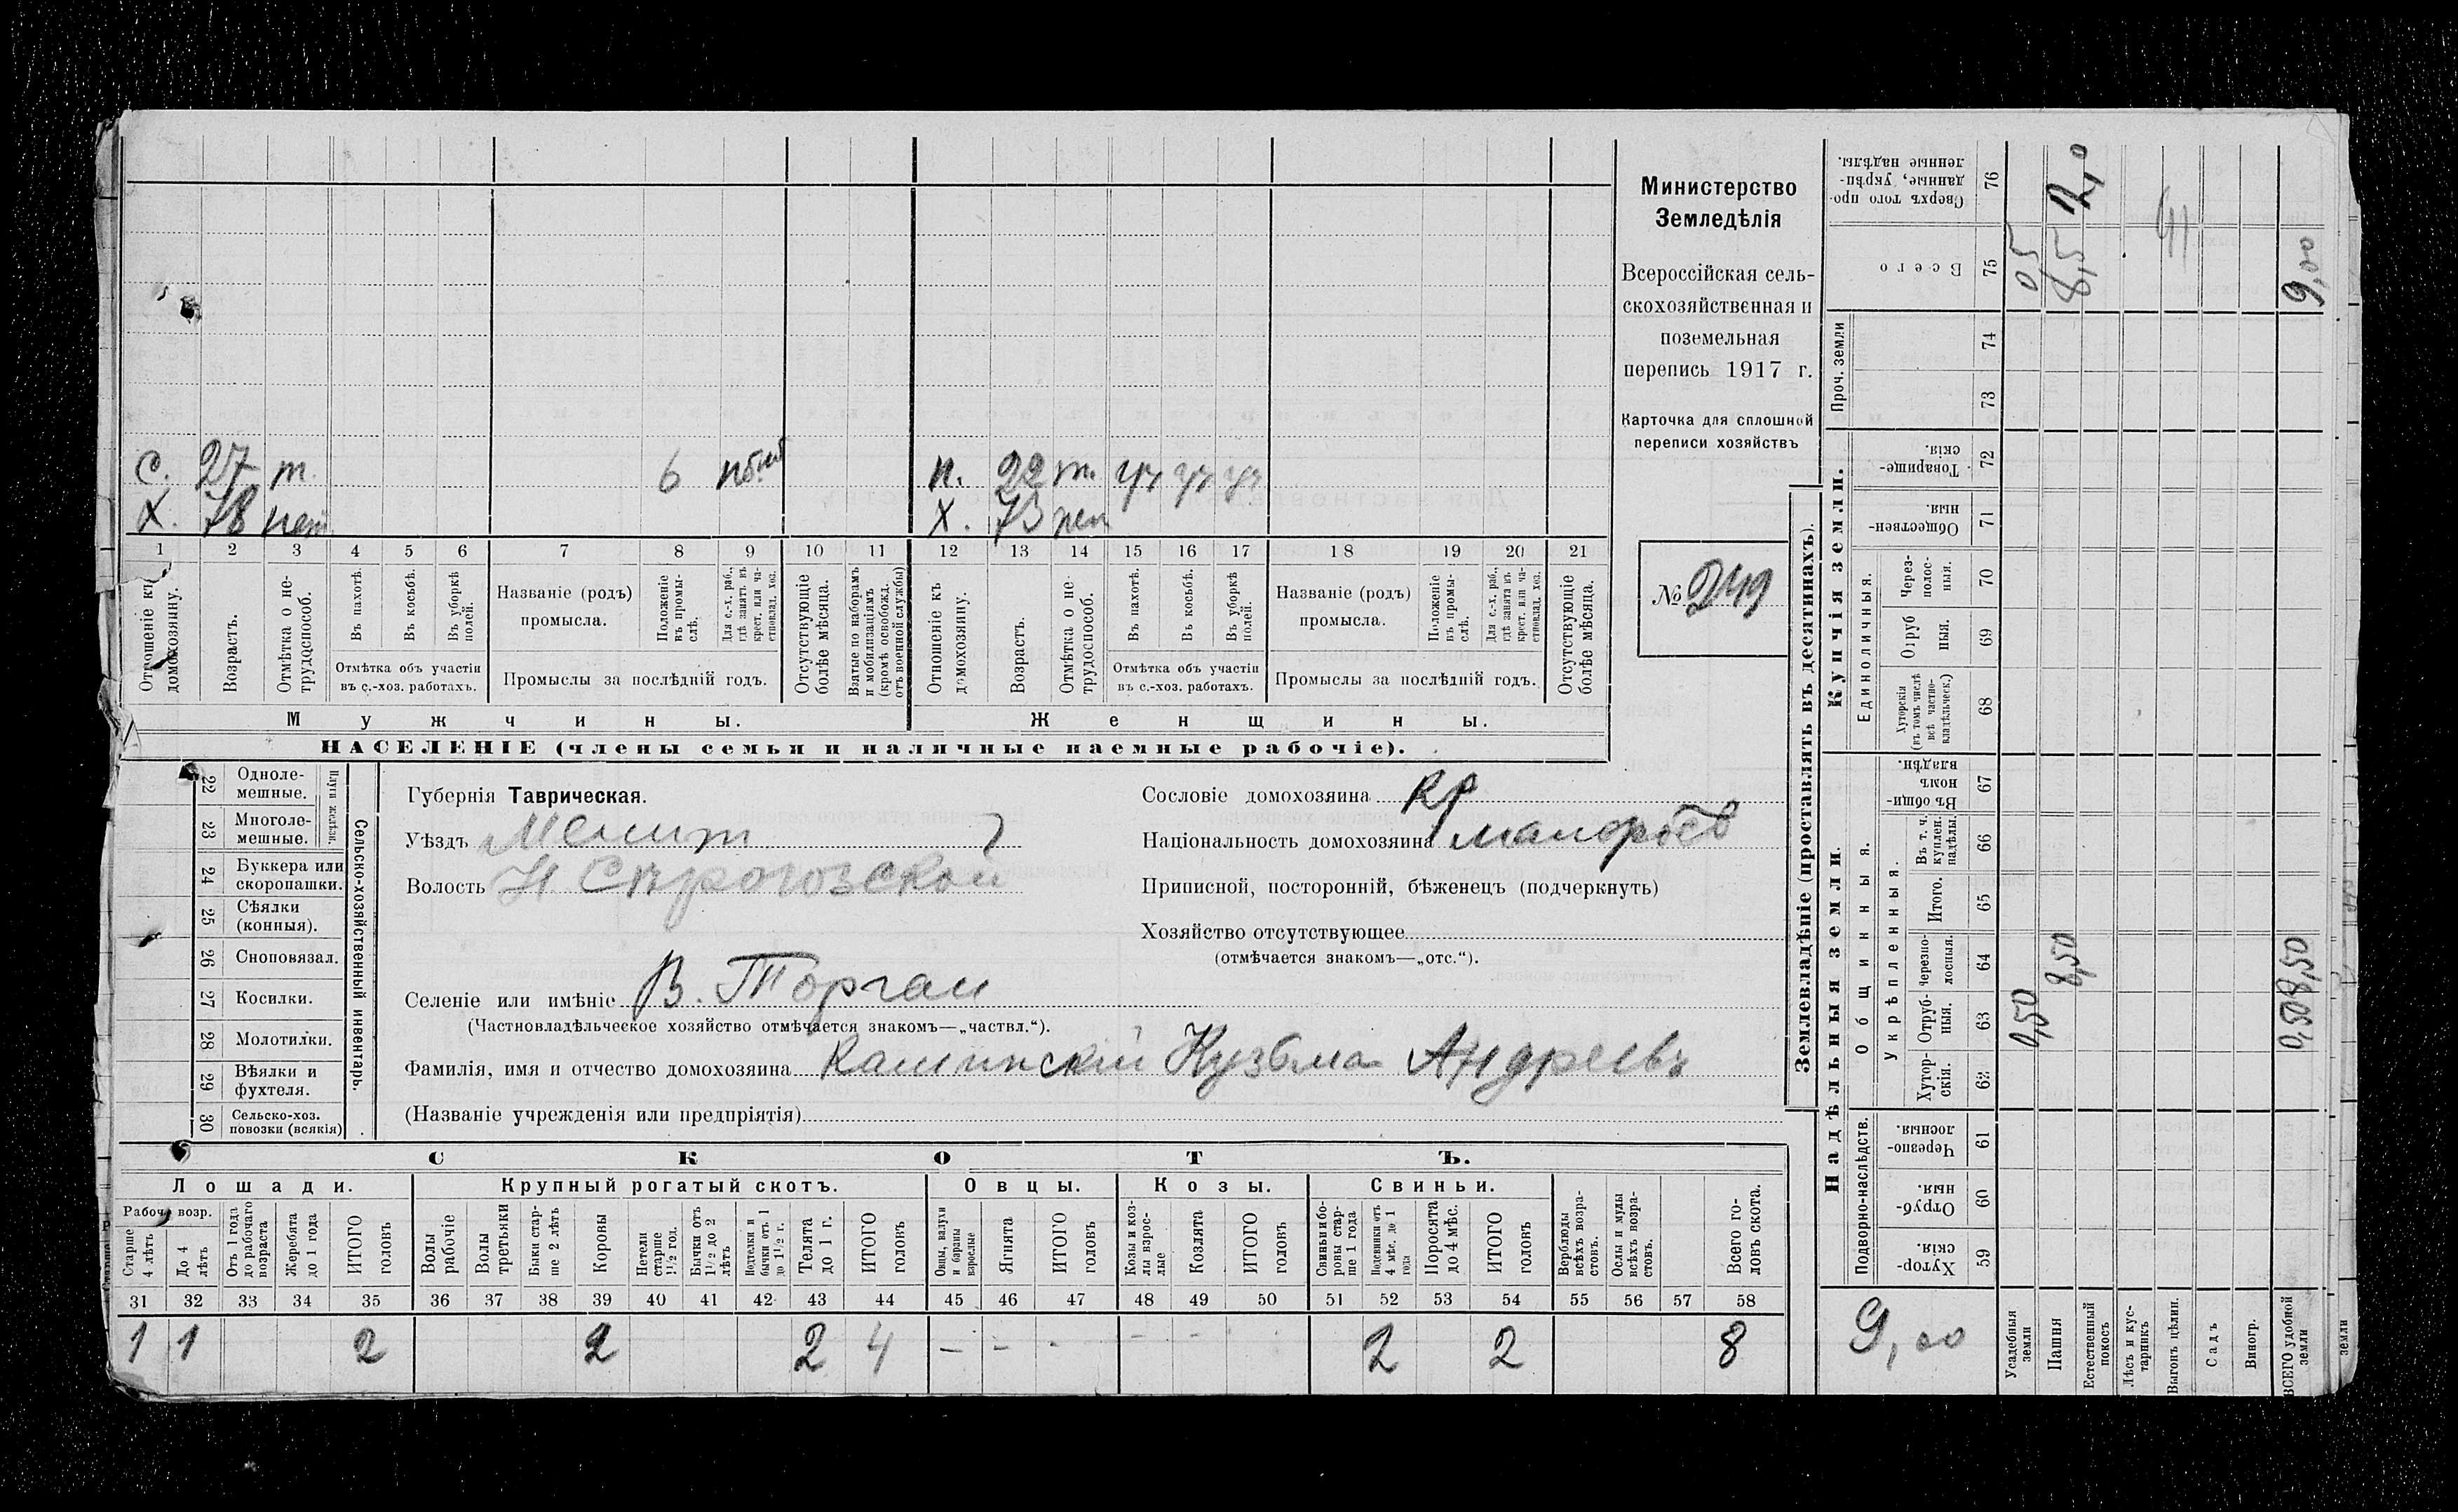 с. 27 т. 6 п. 22 т. уч уч уч
Х. 78 нет Х. 73 нет
1 2 3 4 5 6 7 8 9 10 11 12 13 14 15 16 17 18 19 20 21
Отношеніе къ домохозяину.
Возрастъ.
Отмѣтка о не-
трудоспособ.
Въ пахотѣ.
Въ косьбѣ.
Въ уборкѣ
полей.
Отмѣтка объ участіи
въ с.-хоз. работахъ.
Названіе (родъ)
промысла.
Положеніе
въ промы-
слѣ.
Для с.-х. раб.,
гдѣ занятъ въ
крест. или ча-
стновлад. хоз.
Промыслы за послѣдній годъ.
Отсутствующіе
болѣе мѣсяца.
Взятые по наборамъ
и мобилизаціямъ
(кромѣ освобожд.
отъ военной службы)
Отношеніе къ
домохозяину.
Возрастъ.
Отмѣтка о не-
трудоспособ.
Въ пахотѣ.
Въ косьбѣ.
Въ уборкѣ
полей.
Отмѣтка объ участіи
въ с.-хоз. работахъ.
Названіе (родъ)
промысла.
Положеніе
въ промы-
слѣ.
Для с.-х. раб.,
гдѣ занята въ
крест. или ча-
стновлад. хоз.
Промыслы за послѣдній годъ.
Отсутствующіе
болѣе мѣсяца.
Мужчины.
Женщины.
НАСЕЛЕНІЕ (члены семьи и наличные наемные рабочіе).
Министерство
Земледѣлія
Всероссійская сель-
скохозяйственная и
поземельная
перепись 1917 г.
Карточка для сплошной
переписи хозяйствъ
№ 249
22 Одноле-
мешные.
23 Многоле-
мешные.
Плуги желѣзн.
24 Буккера или
скоропашки.
25 Сѣялки
(конныя).
26 Сноповязал.
27 Косилки.
28 Молотилки.
29 Вѣялки и
фухтеля.
30 Сельско-хоз.
повозки (всякія)
Сельско-хозяйственный инвентарь.
Губернія Таврическая.
Уѣздъ Мелит
Волость Н Строгозской
Селеніе или имѣніе В. Торгаи
(Частновладѣльческое хозяйство отмѣчается знакомъ—„частвл.“).
Фамилія, имя и отчество домохозяина Кашинскій Кузьма Андреевъ
(Названіе учрежденія или предпріятія)
Сословіе домохозяина кр
Національность домохозяина малоросъ
Приписной, посторонній, бѣженецъ (подчеркнуть)
Хозяйство отсутствующее
(отмѣчается знакомъ—„отс.“).
СКОТЪ.
Лошади.
Крупный рогатый скотъ.
Овцы.
Козы.
Свиньи.
Рабоч. возр.
Старше
4 лѣтъ
До 4
лѣтъ
Отъ 1 года
до рабочаго
возраста
Жеребята
до 1 года
ИТОГО
головъ
Волы
рабочіе
Волы
третьяки
Быки стар-
ше 2 лѣтъ
Коровы
Нетели
старше
1½ год.
Бычки отъ
1½ до 2
лѣтъ
бычки отъ 1
до 1½ г.
Телята
до 1 г.
ИТОГО
головъ
Овцы, валухи
и бараны
взрослые
Ягнята
ИТОГО
головъ
Козы и коз-
лы взрос-
лые
Козлята
ИТОГО
головъ
Свиньи и бо-
ровы стар-
ше 1 года
Подсвинки отъ
4 мѣс. до 1
года
Поросята
до 4 мѣс.
ИТОГО
головъ
Верблюды
всѣхъ возра-
стовъ.
Ослы и мулы
всѣхъ возра-
стовъ.
Всего го-
ловъ скота.
31 32 33 34 35 36 37 38 39 40 41 42 43 44 45 46 47 48 49 50 51 52 53 54 55 56 57 58
1 1 2 2 2 4 — — - - - 2 2 8
Землевладѣніе (проставлять въ десятинахъ).
Надѣльныя земли.
Купчія земли.
Проч. земли
Подворно-наслѣдств.
Общинныя.
Укрѣпленныя.
Единоличныя.
59 Хутор-
скія.
60 Отруб-
ныя.
61 Черезпо-
лосныя.
62 Хутор-
скія.
63 Отруб-
ныя.
64 Черезпо-
лосныя.
65 Итого.
66 Въ т. ч.
куплен.
надѣлы.
67 Въ общи-
номъ
владѣн.
68 Хуторскія
(въ томъ числѣ
всѣ частно-
владѣльческ.)
69 Отруб
ныя.
70 Через-
полос-
ныя.
71 Обществен-
ныя.
72 Товарище-
скія.
73
74
75 Всего
76 Сверхъ того про-
данные, укрѣп-
ленные надѣлы.
Усадебныя
земли
0,50 05
Пашня
8,50 8,5 12,0
Естественный
покосъ
Лѣсъ и кус-
тарникъ
Выгонъ цѣлин.
Садъ
Виногр.
ВСЕГО удобной
земли
0,50 8,50 9,00
земли
9,00